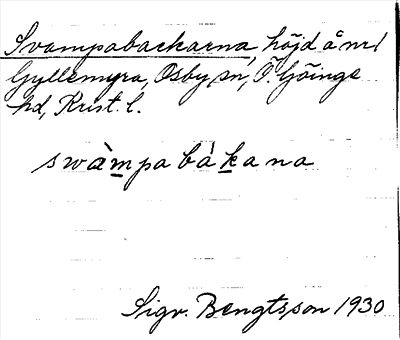 Svampabackarna, höjd å nr 1
Gyllemyra, Osby sn, Ö. Göinge
hd, Krist. l.
swàmpabàkana
Sigv. Bengtsson 1930